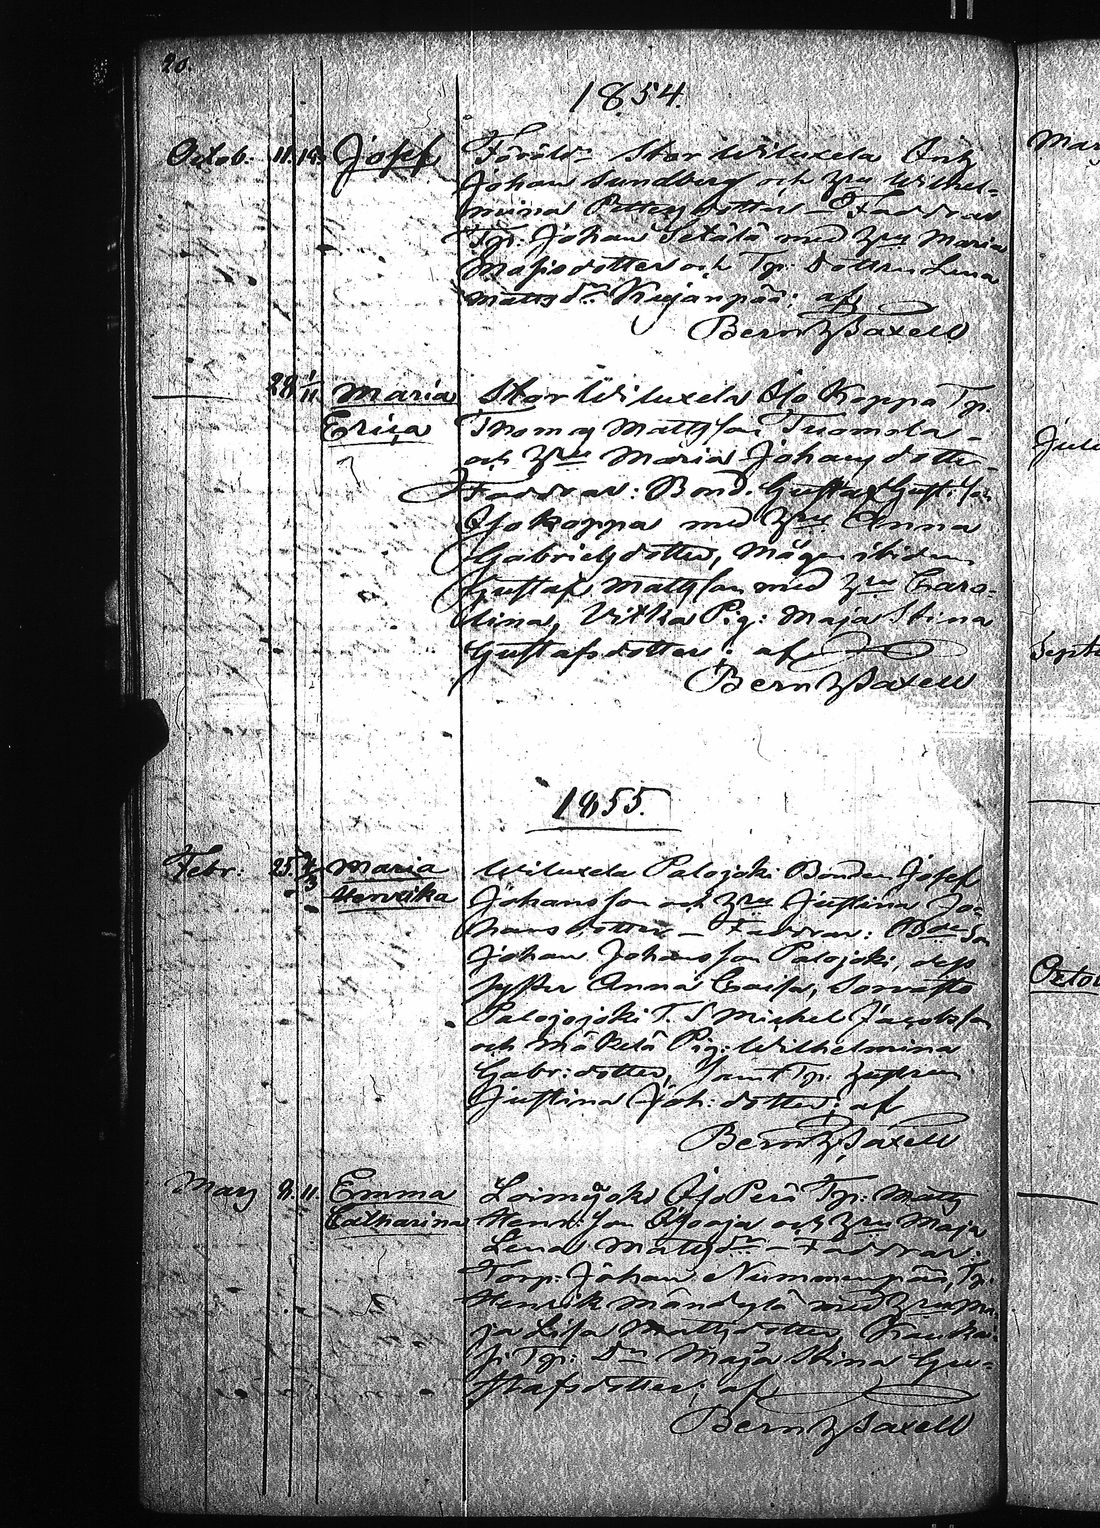 20.
1854.
Octob. 11. 15. Josef Föräldr Stor Wiluxela Enk
Johan Sundberg och Hru Wilhel=
mina Pettersdotter – Faddrar
Tp. Johan Setälä med Hru Maria
Matsdotter och Tp. Dottren Lena
Mattsdr Kujanpää; af
Berntz Saxell
28. 1/11 Maria Stor Wiluxela Iso Koppa Tp.
Erica Thomas Mattsson Tuomola
och Hru Maria Johansdotter –
Faddrar: Bond. Gustaf Gust:son
Isokoppa med Hru Anna
Gabrielsdotter, Mågen ibidem
Gustaf Mattsson med Hru Caro=
lina, Pig: Maja Stina
Gustafsdotter; af
Berntz Saxell
1855.
Febr. 25. 4/3 Maria Wiluxela Palojoki Bonden Josef
Henrika Johansson och Hru Justina Jo=
hansdotter – Faddrar: Bdeson
Johan Johansson Palojoki, dess
syster Anna Caisa, Sorvasto
Palojoki T. S Michel Jacobsson
och Mäkelä Pig: Wilhelmina
Gabr:dotter, samt Tp.
Justina Joh: dotter; af
Berntz Saxell
May 8. 11. Emma Loimijoki Iso Perä Tp: Matts
Catharina Henr:son Ojooja och Hru Maja
Lena Mattsdr – Faddrar:
Torp: Johan Nummenpää, Tp.
Henrik Mändylä med Hru Ma
ja Lisa Mattsdotter,
Tp: Dn Maja Stina Gu=
stafsdotter; af
Berntz Saxell
Septe
Octob